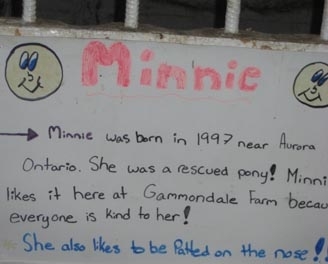 Minnie
Minnie was born in 1997 near Aurora
Ontario. She was a rescued pony! Minni
likes it here at Gammondale Farm becau
everyone is kind to her!
She also likes to be Patted on the nose!!